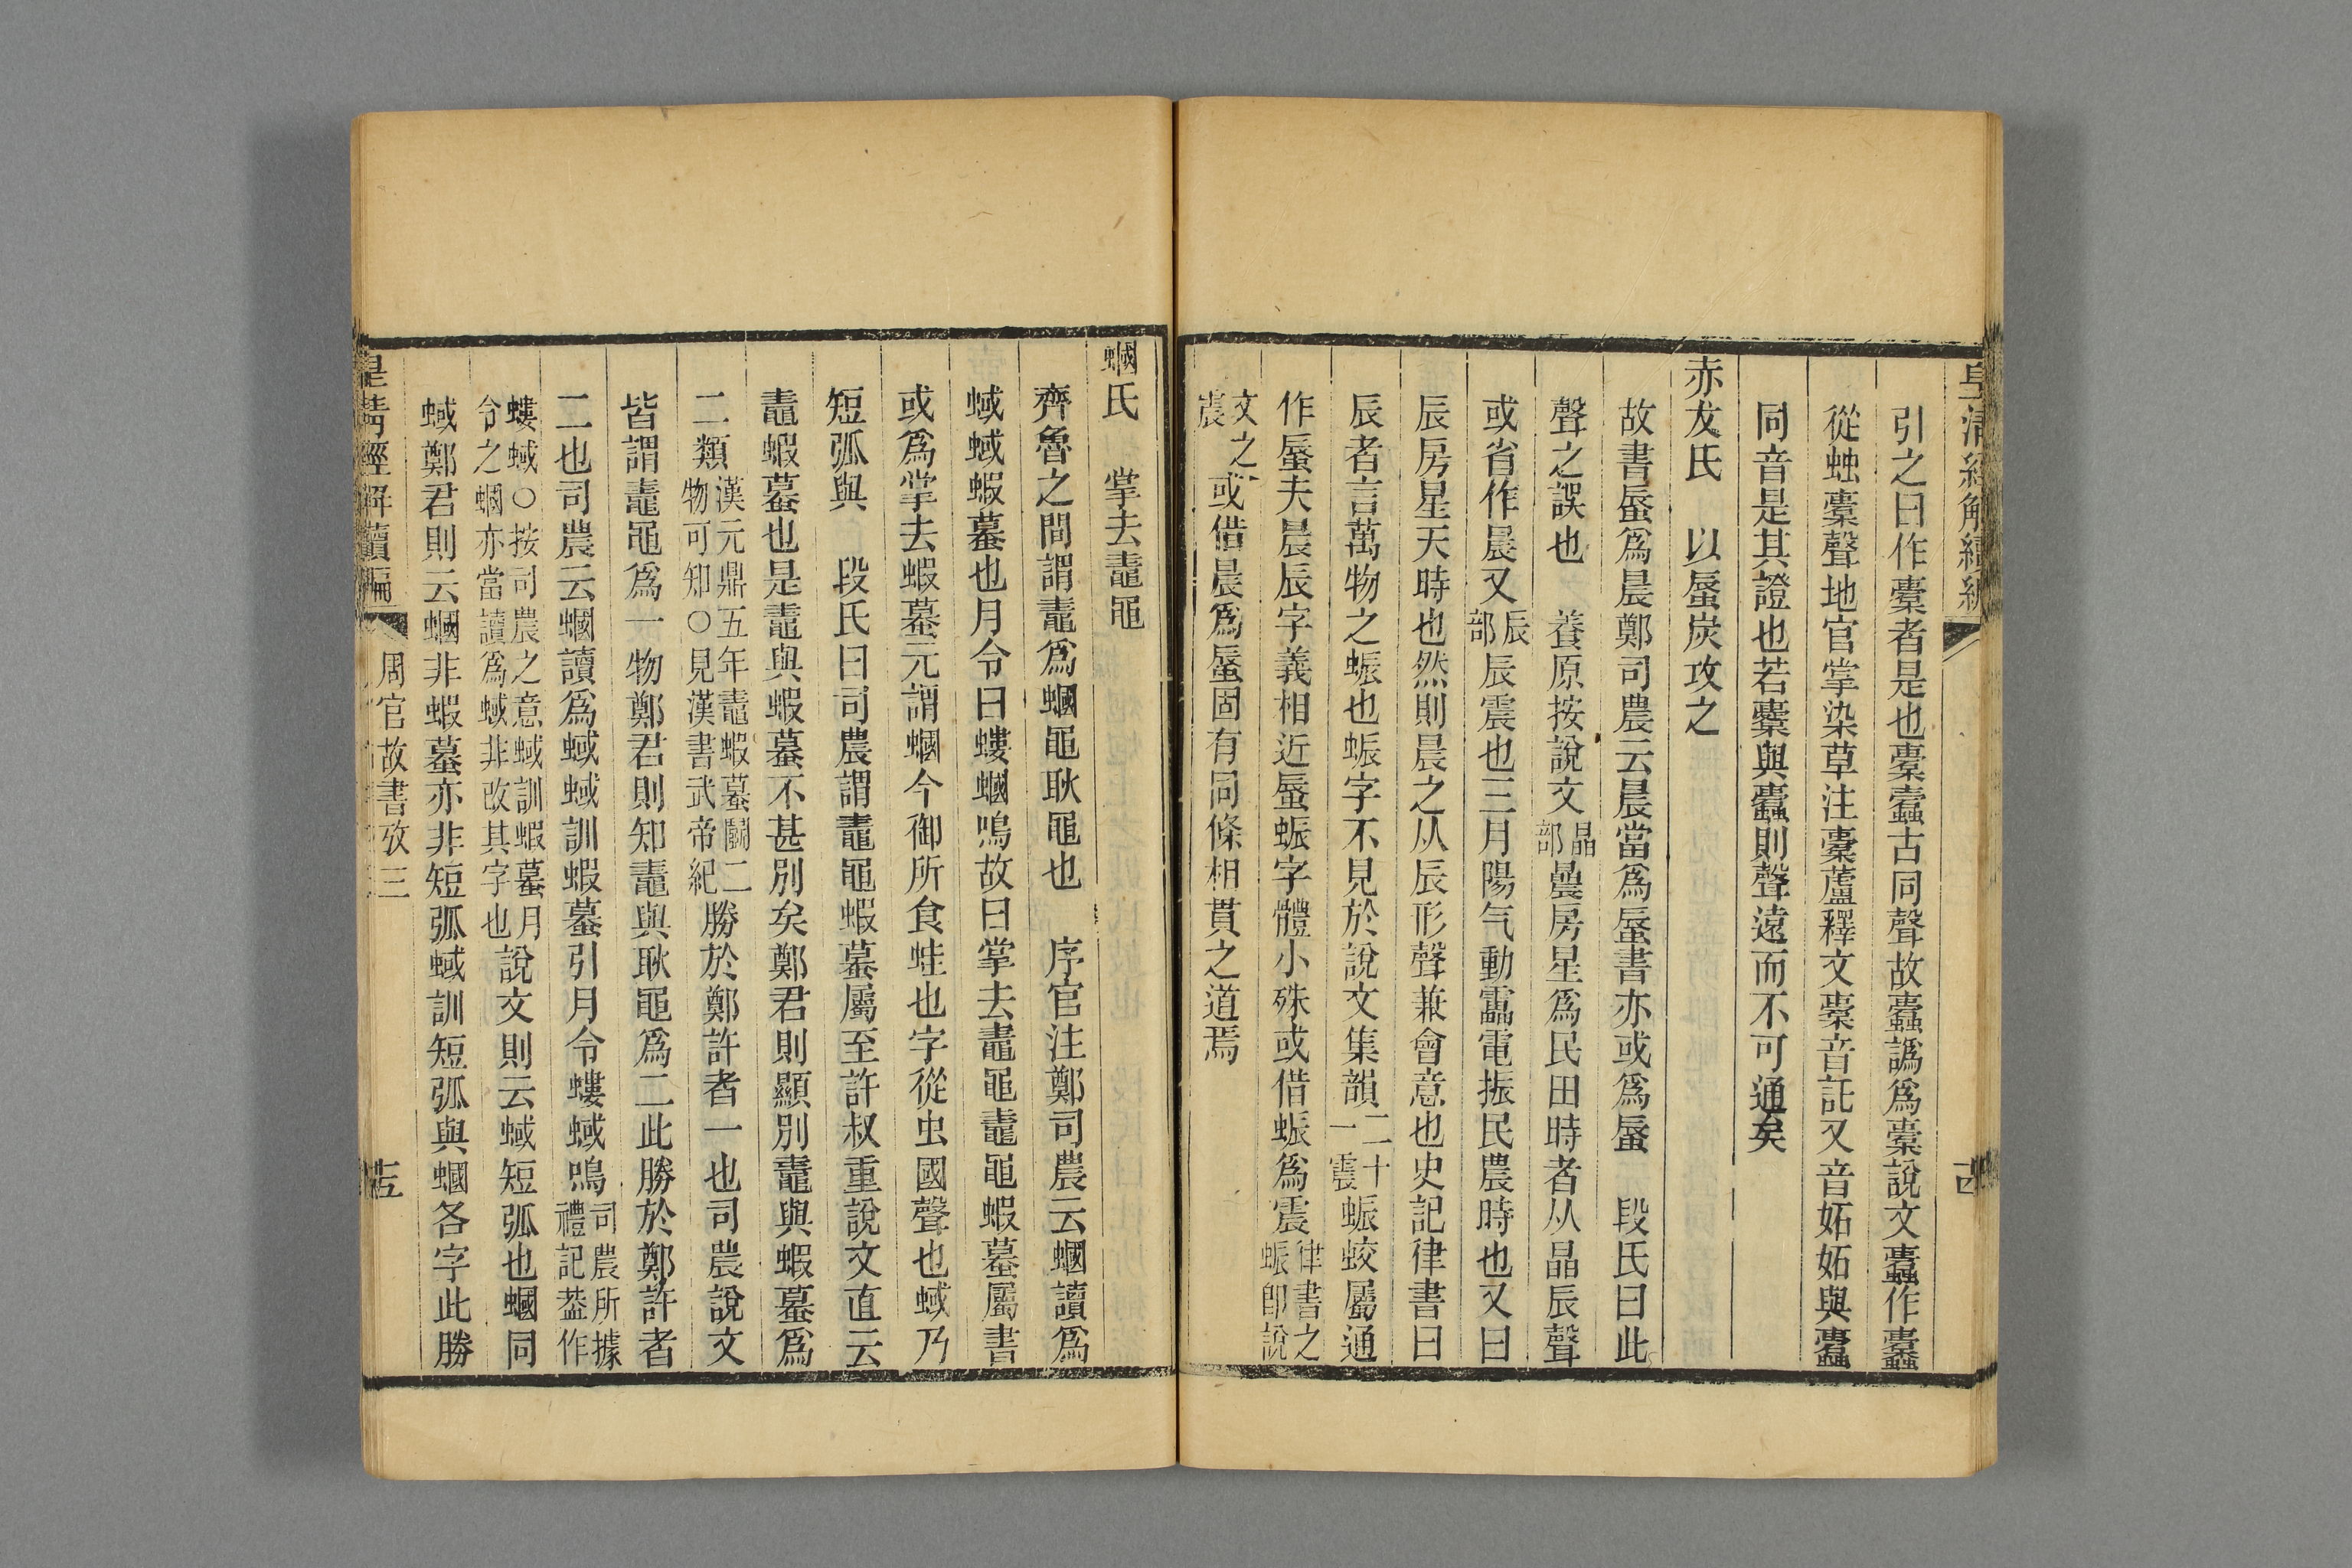 皇清經解續編
引之曰作橐者是也橐蠹古同聲故蠹譌爲橐說文蠹作螙
從䖵橐聲地官掌染草注橐蘆釋文橐音託又音妬妬與蠹
同音是其證也若櫜與蠹則聲遠而不可通矣
赤犮氏　以蜃炭攻之
故書蜃爲晨鄭司農云晨當爲蜃書亦或爲蜃　段氏曰此
聲之誤也　養原按說文晶部曟房星爲民田時者从晶辰聲
或省作晨又辰部辰震也三月陽气動靁電振民農時也又曰
辰房星天時也然則晨之从辰形聲兼會意也史記律書曰
辰者言萬物之蜄也蜄字不見於說文集韻二十一震蜄蛟屬通
作蜃夫晨辰字義相近蜃蜄字體小殊或借蜄爲震律書之蜄卽說
文之震或借晨爲蜃固有同條相貫之道焉
蟈氏　掌去鼃黽
齊魯之間謂鼃爲蟈黽耿黽也　序官注鄭司農云蟈讀爲
蜮蜮蝦蟇也月令曰螻蟈鳴故曰掌去鼃黽鼃黽蝦蟇屬書
或爲掌去蝦蟇元謂蟈今御所食蛙也字從虫國聲也蜮乃
短弧與　段氏曰司農謂鼃黽蝦蟇屬至許叔重說文直云
鼃蝦蟇也是鼃與蝦蟇不甚別矣鄭君則顯別鼃與蝦蟇爲
二類漢元鼎五年鼃蝦蟇鬭二物可知○見漢書武帝紀勝於鄭許者一也司農說文
皆謂鼃黽爲一物鄭君則知鼃與耿黽爲二此勝於鄭許者
二也司農云蟈讀爲蜮蜮訓蝦蟇引月令螻蜮鳴司農所據禮記葢作
螻蜮○按司農之意蜮訓蝦蟇月令之蟈亦當讀爲蜮非改其字也說文則云蜮短弧也蟈同
蜮鄭君則云蟈非蝦蟇亦非短弧蜮訓短弧與蟈各字此勝
皇清經解續編
周官故書攷三
十五